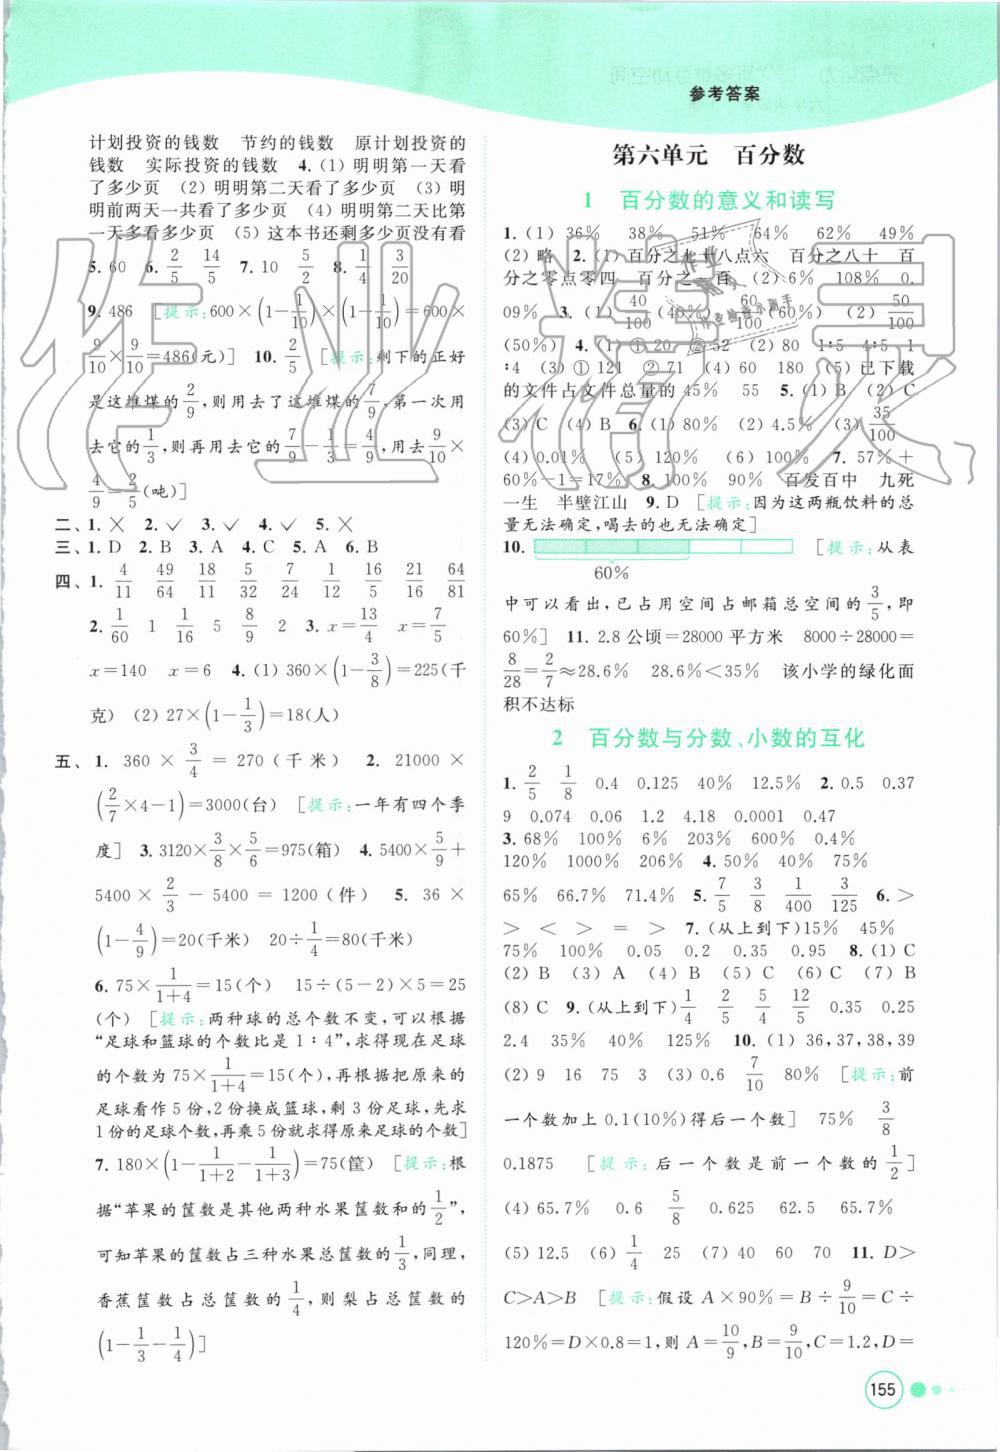 参考答案
计划投资的钱数 节约的钱数 原计划投资的
钱数 实际投资的钱数 4.(1)明明第一天看
了多少页 (2)明明第二天看了多少页 (3)明
明前两天一共看了多少页 (4)明明第二天比第
一天多看多少页 (5)这本书还剩多少页没有看
5. 60 6. 2/5 14/5 7. 10 5/2 8. 1/4 3/20
9. 486 [提示:600×(1-1/10)×(1-1/10)=600×
9/10×9/10=486(元)] 10. 2/5 [提示:剩下的正好
是这堆煤的2/9,则用去了这堆煤的7/9,第一次用
去它的1/3,则再用去它的7/9-1/3=4/9,用去9/10×
4/9=2/5(吨)]
二、1.× 2.✓ 3.✓ 4.✓ 5.×
三、1.D 2.B 3.A 4.C 5.A 6.B
四、1. 4/11 49/64 18/11 5/32 7/24 1/12 16/5 21/16 64/81
2. 1/60 1 1/16 5 8/9 2 3. x=13/4 x=7/5
x=140 x=6 4.(1)360×(1-3/8)=225(千
克) (2)27×(1-1/3)=18(人)
五、1. 360×3/4=270(千米) 2. 21000×
(2/7×4-1)=3000(台) [提示:一年有四个季
度] 3. 3120×3/8×5/6=975(箱) 4. 5400×5/9+
5400×2/3-5400=1200(件) 5. 36×
(1-4/9)=20(千米) 20÷1/4=80(千米)
6. 75×1/(1+4)=15(个) 15÷(5-2)×5=25
(个) [提示:两种球的总个数不变,可以根据
“足球和篮球的个数比是1∶4”,求得现在足球
的个数为75×1/(1+4)=15(个),再根据把原来的
足球看作5份,2份换成篮球,剩3份足球,先求
1份的足球个数,再乘5份就得原来足球的个数]
7. 180×(1-1/(1+2)-1/(1+3))=75(筐) [提示:根
据“苹果的筐数是其他两种水果筐数和的1/2”,
可知苹果的筐数占三种水果总筐数的1/3,同理,
香蕉筐数占总筐数的1/4,则梨占总筐数的
(1-1/3-1/4)]
第六单元 百分数
1 百分数的意义和读写
1.(1)36% 38% 51% 64% 62% 49%
(2)略 2.(1)百分之七十八点六 百分之八十 百
分之零点零四 百分之一百 (2)6% 108% 0.
09% 3.(1)40/100(40%) 60/100(60%) (2)50/100
(50%) 4.(1)①20 ②52 (2)80 1∶5 4∶5 1
∶4 (3)①121 ②71 (4)60 180 (5)已下载
的文件占文件总量的45% 55 5.(1)B (2)C
(3)C (4)B 6.(1)80% (2)4.5% (3)35/100
(4)0.01% (5)120% (6)100% 7. 57%+
60%-1=17% 8. 100% 90% 百发百中 九死
一生 半壁江山 9. D [提示:因为这两瓶饮料的总
量无法确定,喝去的也无法确定]
10. [提示:从表
60%
中可以看出,已占用空间占邮箱总空间的3/5,即
60%] 11. 2.8公顷=28000平方米 8000÷28000=
8/28=2/7≈28.6% 28.6%<35% 该小学的绿化面
积不达标
2 百分数与分数、小数的互化
1. 2/5 1/8 0.4 0.125 40% 12.5% 2. 0.5 0.37
9 0.074 0.06 1.2 4.18 0.0001 0.47
3. 68% 100% 6% 203% 600% 0.4%
120% 1000% 206% 4. 50% 40% 75%
65% 66.7% 71.4% 5. 7/5 3/8 1/400 3/125 6. >
> < > = > 7.(从上到下)15% 45%
75% 100% 0.05 0.2 0.35 0.95 8.(1)C
(2)B (3)A (4)B (5)C (6)C (7)B
(8)C 9.(从上到下)1/4 2/5 5/4 12/5 0.35 0.25
2.4 35% 40% 125% 10.(1)36,37,38,39
(2)9 16 75 3 (3)0.6 7/10 80% [提示:前
一个数加上0.1(10%)得后一个数] 75% 3/8
0.1875 [提示:后一个数是前一个数的1/2]
(4)65.7% 0.6 5/8 0.625 62.5 65.7%
(5)12.5 (6)1/4 25 (7)40 60 70 11. D>
C>A>B [提示:假设A×90%=B÷9/10=C÷
120%=D×0.8=1,则A=10/9,B=9/10,C=1.2,D=
155
作业精灵